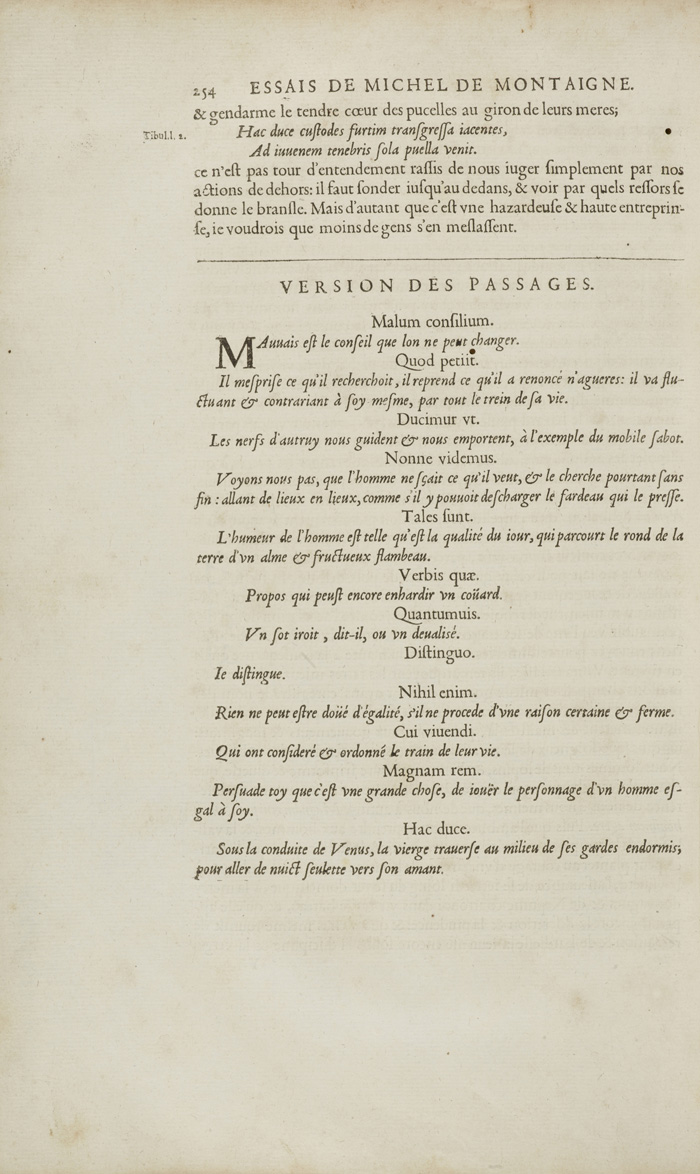 254 ESSAIS DE MICHEL DE MONTAIGNE.
& gendarme le tendre cœur des pucelles au giron de leurs meres;
Tibul.l. 2. Hac duce cuſtodes furtim tranſgreſſa iacentes,
Ad iuuenem tenebris ſola puella venit.
ce n'eſt pas tour d'entendement raſſis de nous iuger ſimplement par nos
actions de dehors: il faut ſonder iuſqu'au dedans, & voir par quels reſſors ſe
donne le branſle. Mais d'autant que c'eſt vne hazardeuſe & haute entreprin-
ſe, ie voudrois que moins de gens s'en meſlaſſent.
VERSION DES PASSAGES.
Malum conſilium.
MAuuais eſt le conſeil que lon ne peut changer.
Quod petiit.
Il meſpriſe ce qu'il recherchoit, il reprend ce qu'il a renoncé n'agueres: il va flu-
ctuant & contrariant à ſoy meſme, par tout le trein de ſa vie.
Ducimur vt.
Les nerfs d'autruy nous guident & nous emportent, à l'exemple du mobile ſabot.
Nonne videmus.
Voyons nous pas, que l'homme ne ſçait ce qu'il veut, & le cherche pourtant ſans
fin : allant de lieux en lieux, comme s'il y pouuoit deſcharger le fardeau qui le preſſe.
Tales ſunt.
L'humeur de l'homme eſt telle qu'eſt la qualité du iour, qui parcourt le rond de la
terre d'vn alme & fructueux flambeau.
Verbis quæ.
Propos qui peuſt encore enhardir vn coüard.
Quantumuis.
Vn ſot iroit , dit-il, ou vn deualisé.
Diſtinguo.
Ie diſtingue.
Nihil enim.
Rien ne peut eſtre doüé d'égalité, s'il ne procede d'vne raiſon certaine & ferme.
Cui viuendi.
Qui ont conſideré & ordonné le train de leur vie.
Magnam rem.
Perſuade toy que c'eſt vne grande choſe, de iouër le perſonnage d'vn homme eſ-
gal à ſoy.
Hac duce.
Sous la conduite de Venus, la vierge trauerſe au milieu de ſes gardes endormis;
pour aller de nuict ſeulette vers ſon amant.